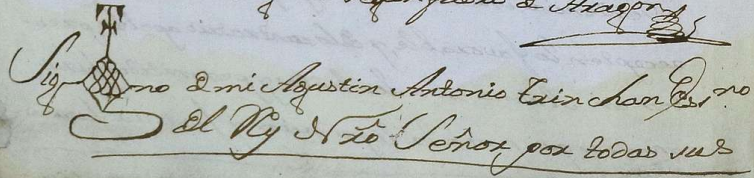 de Aragon
Sig no de mi Agustin Antonio Trinchan Ess.no
del Rey Nr̃o Señor, por todas sus